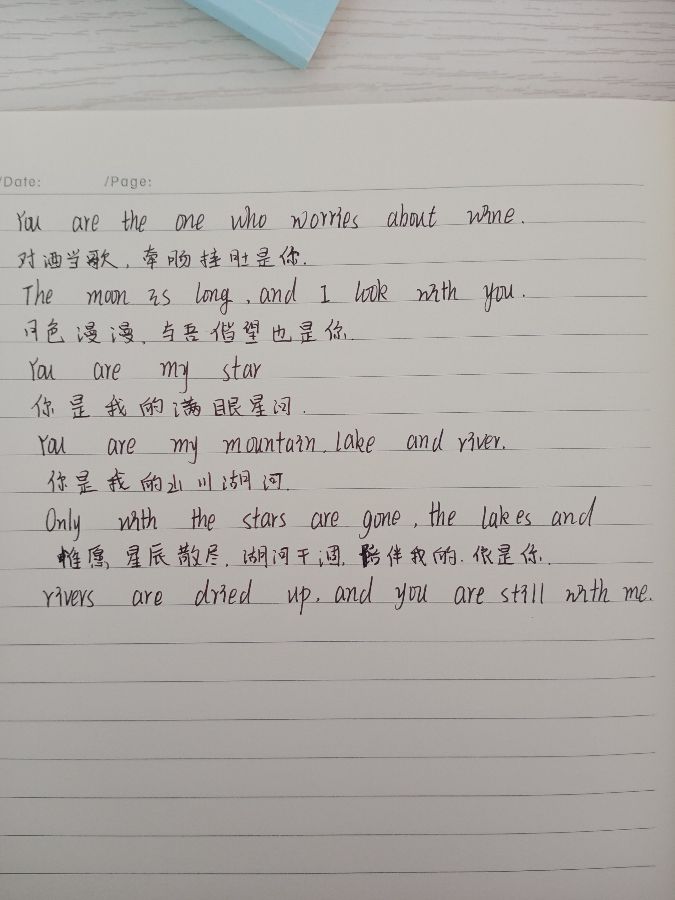 /Date: /Page:
You are the one who worries about wine.
对酒当歌，牵肠挂肚是你.
The moon is long, and I look with you.
月色漫漫，与吾偕望也是你.
You are my star
你是我的满眼星河.
You are my mountain, lake and river.
你是我的山川湖河.
Only with the stars are gone, the lakes and
惟愿星辰散尽，湖河干涸，陪伴我的，依是你.
rivers are dried up, and you are still with me.